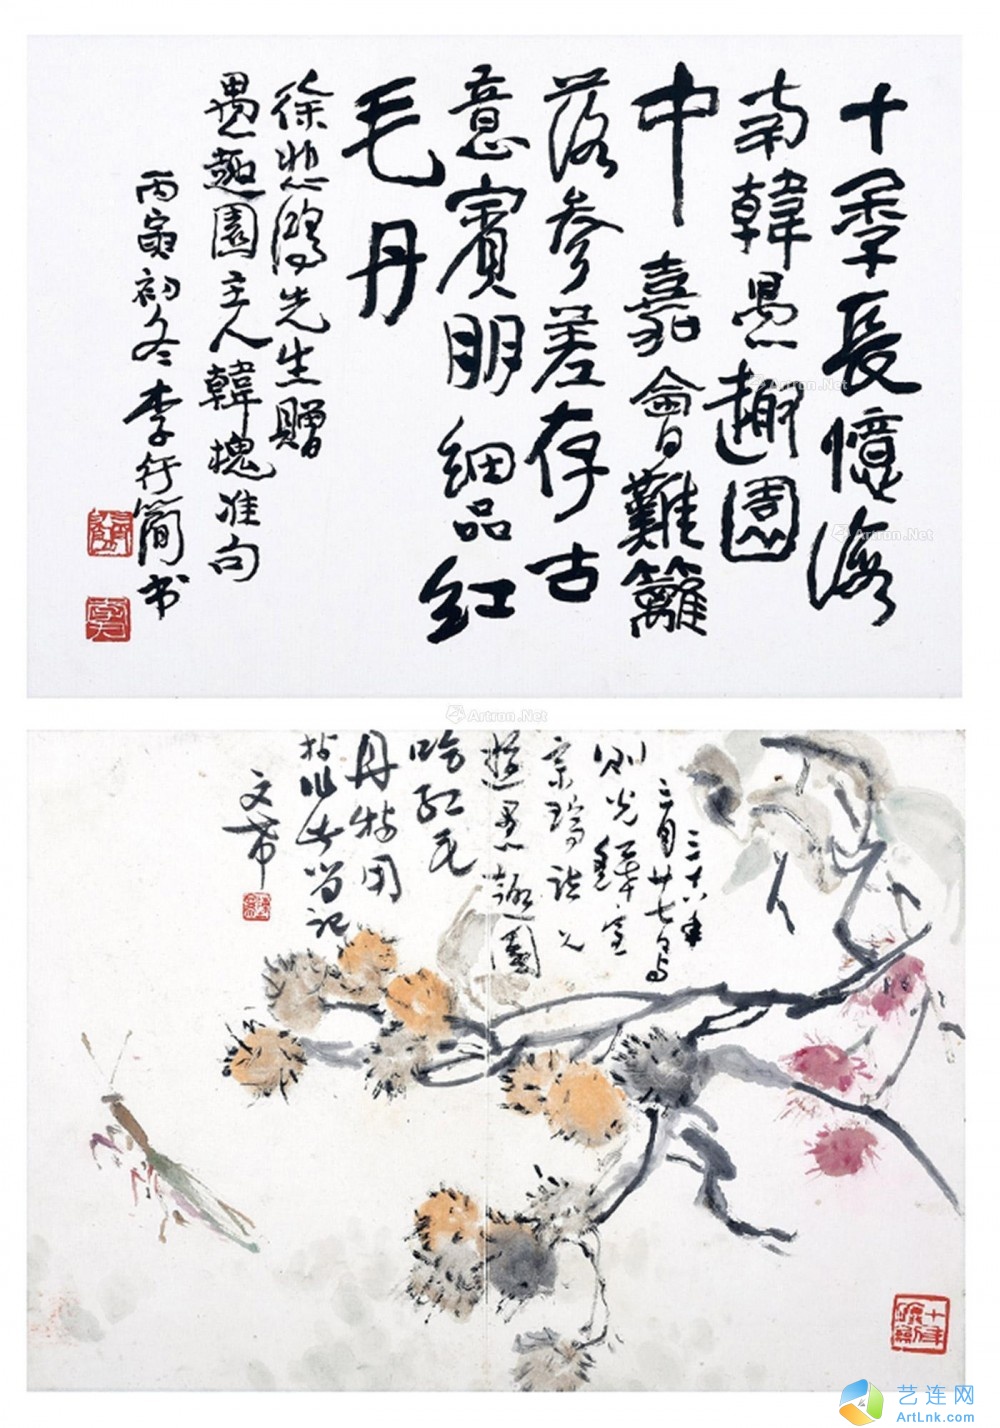 十秊長憶海
南韓愚趣園
中嘉會難籬
落參差存古
意賓朋細品紅
毛丹
徐悲鴻先生贈
愚趣園主人韓槐准句
丙寅初冬李行簡书
Artron.Net
Artron.Net
Artron.Net
三十八年
三月廿七日与
则光
宗瑞诸兄
遊愚趣園
红毛
丹特用
指作此留记
文希
艺连网
ArtLnk.com